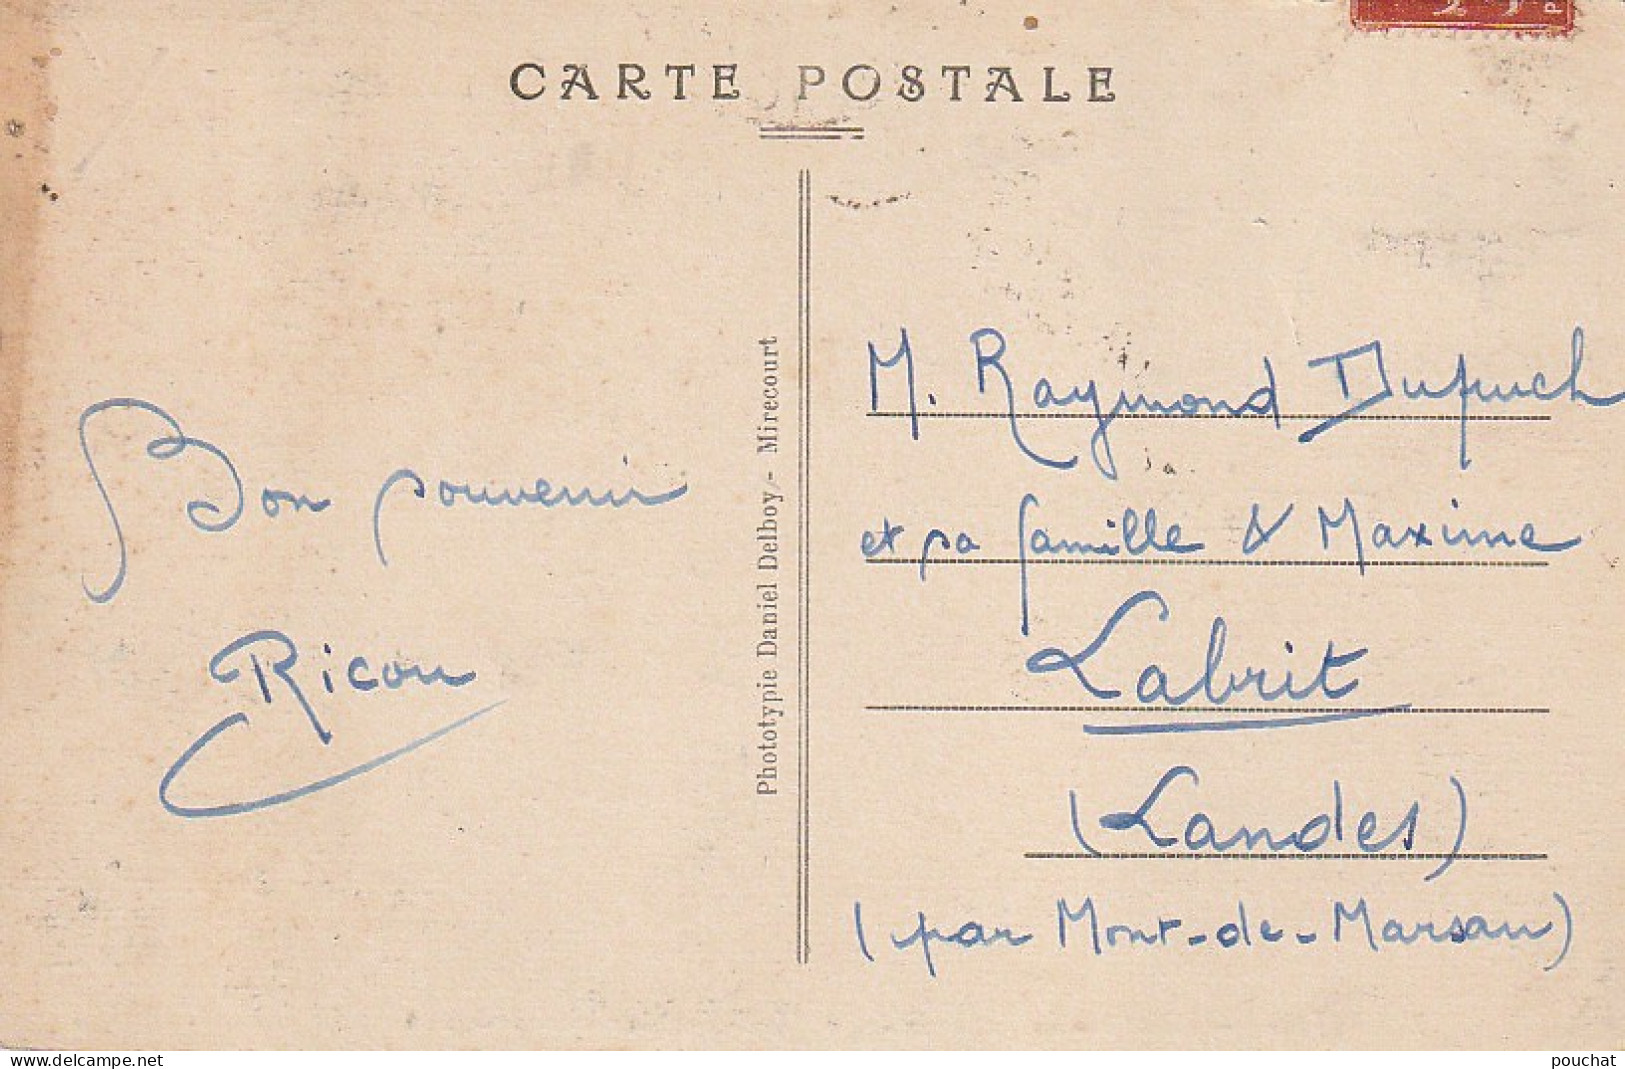 CARTE POSTALE
Bon souvenir
Ricou
Phototypie Daniel Delboy - Mirecourt
M. Raymond Dupuch
et sa famille & Maxime
Labrit
(Landes)
(par Mont-de-Marsan)
delcampe.net
pouchat